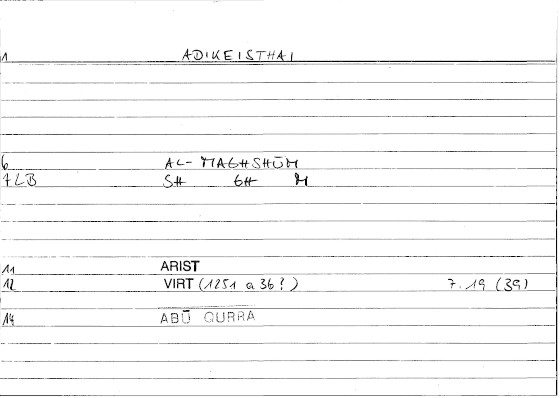 1 ADIKEISTHAI
6 AL-MAGHSHŪM
7LB SH GH M
11 ARIST
12 VIRT (1251 a 36?) 7.19 (39)
14 ABŪ QURRA